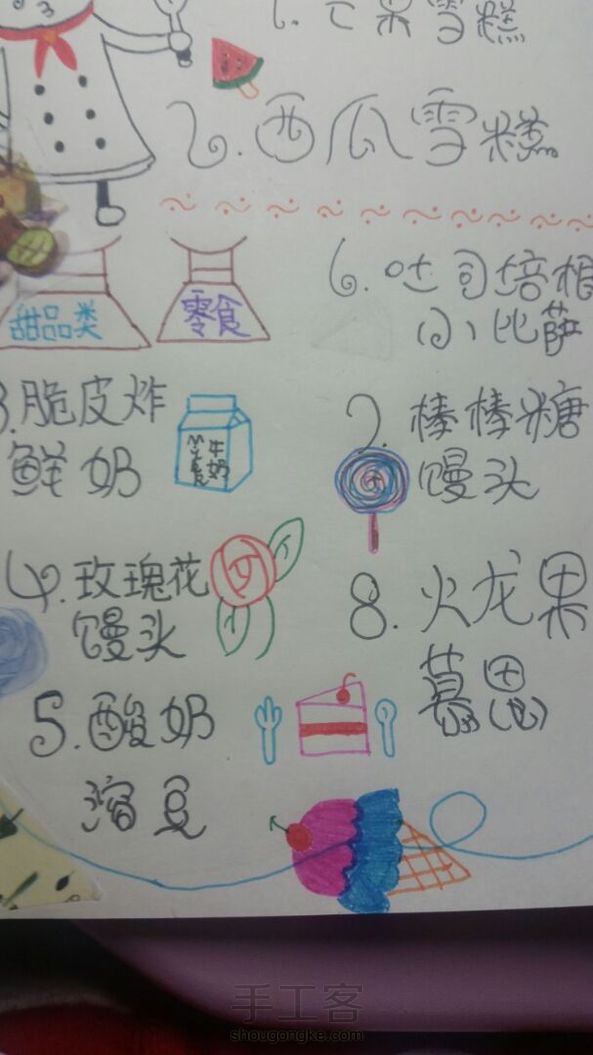 1.芒果雪糕
2.西瓜雪糕
甜品类
零食
3.脆皮炸
鲜奶
牛奶
4.玫瑰花
馒头
5.酸奶
溶豆
6.吐司培根
小比萨
7.棒棒糖
馒头
8.火龙果
慕思
手工客
shougongke.com